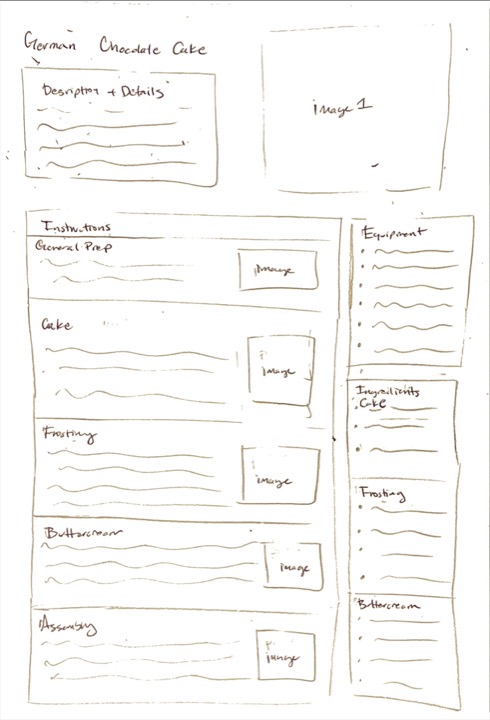 German Chocolate Cake
Description + Details
image 1
Instructions
General Prep
image
Cake
image
Frosting
image
Buttercream
image
Assembly
image
Equipment
Ingredients
Cake
Frosting
Buttercream